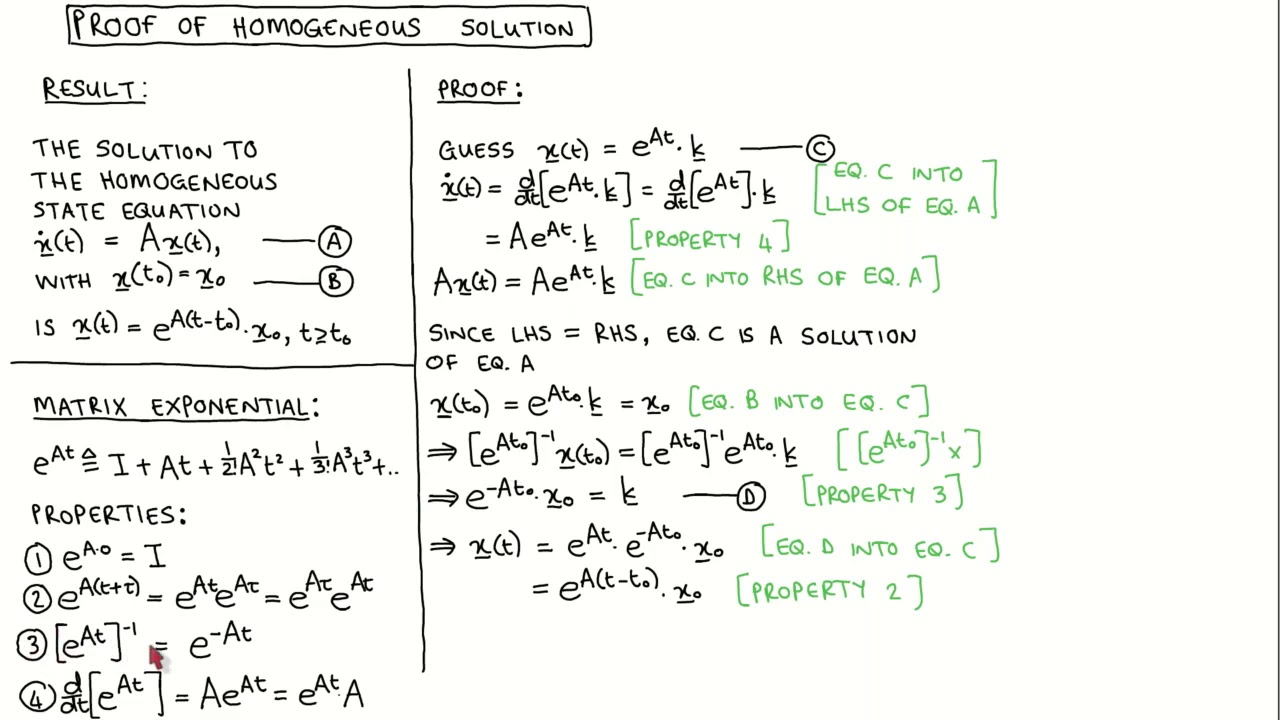 PROOF OF HOMOGENEOUS SOLUTION
RESULT:
THE SOLUTION TO
THE HOMOGENEOUS
STATE EQUATION
ẋ(t) = Ax(t), —— Ⓐ
WITH x(t₀) = x₀ —— Ⓑ
IS x(t) = e^{A(t-t₀)}·x₀, t≥t₀
MATRIX EXPONENTIAL:
e^{At} ≜ I + At + 1/2! A²t² + 1/3! A³t³+..
PROPERTIES:
① e^{A·0} = I
② e^{A(t+τ)} = e^{At}e^{Aτ} = e^{Aτ}e^{At}
③ [e^{At}]⁻¹ = e^{-At}
④ d/dt[e^{At}] = Ae^{At} = e^{At}·A
PROOF:
GUESS x(t) = e^{At}·k —— Ⓒ
ẋ(t) = d/dt[e^{At}·k] = d/dt[e^{At}]·k [EQ. C INTO
LHS OF EQ. A]
= Ae^{At}·k [PROPERTY 4]
Ax(t) = Ae^{At}·k [EQ. C INTO RHS OF EQ. A]
SINCE LHS = RHS, EQ. C IS A SOLUTION
OF EQ. A
x(t₀) = e^{At₀}·k = x₀ [EQ. B INTO EQ. C]
⇒ [e^{At₀}]⁻¹x(t₀) = [e^{At₀}]⁻¹e^{At₀}·k [[e^{At₀}]⁻¹×]
⇒ e^{-At₀}·x₀ = k —— Ⓓ [PROPERTY 3]
⇒ x(t) = e^{At}·e^{-At₀}·x₀ [EQ. D INTO EQ. C]
= e^{A(t-t₀)}·x₀ [PROPERTY 2]